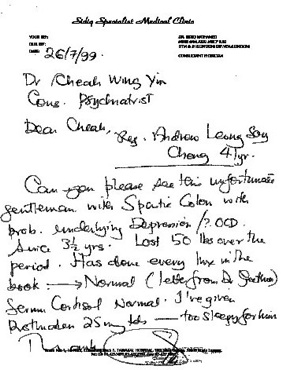 Sidiq Specialist Medical Clinic
YOUR REF:
OUR REF:
DATE: 26/7/99.
CONSULTANT PHYSICIAN
Dr Cheah Wing Yin
Cons. Psychiatrist
Dear Cheah,
Reg. Andrew Leong
Cheong 41yr.
Can you please see this unfortunate
gentleman with Spastic Colon with
prob. underlying Depression /? OCD
Since 3½ yrs. Lost 50 lbs over the
period. Has done every thing in the
book: → Normal (letter from Dr
Serum Cortisol Normal. I've given
25 mg tds — too sleepy for him
Thank